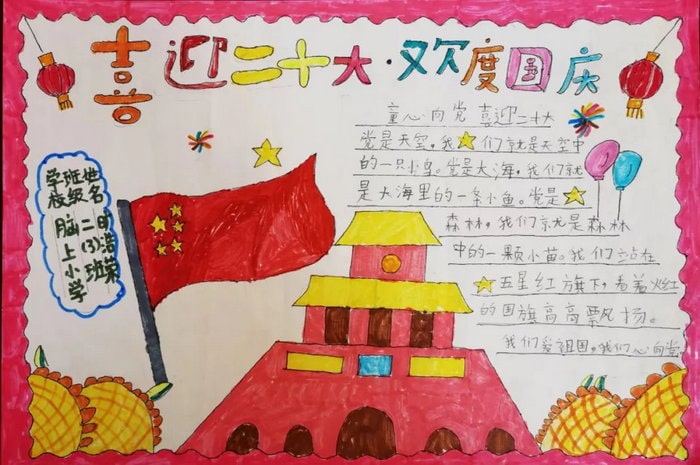 喜迎二十大·欢度国庆
童心向党 喜迎二十大
党是天空,我们就是天空中
的一只小鸟。党是大海,我们就
是大海里的一条小鱼。党是
森林,我们就是森林
中的一颗小苗。我们站在
五星红旗下,看着火红
的国旗高高飘扬。
我们爱祖国,我们心向党。
姓名
班级 二(3)班
学校 脑上小学